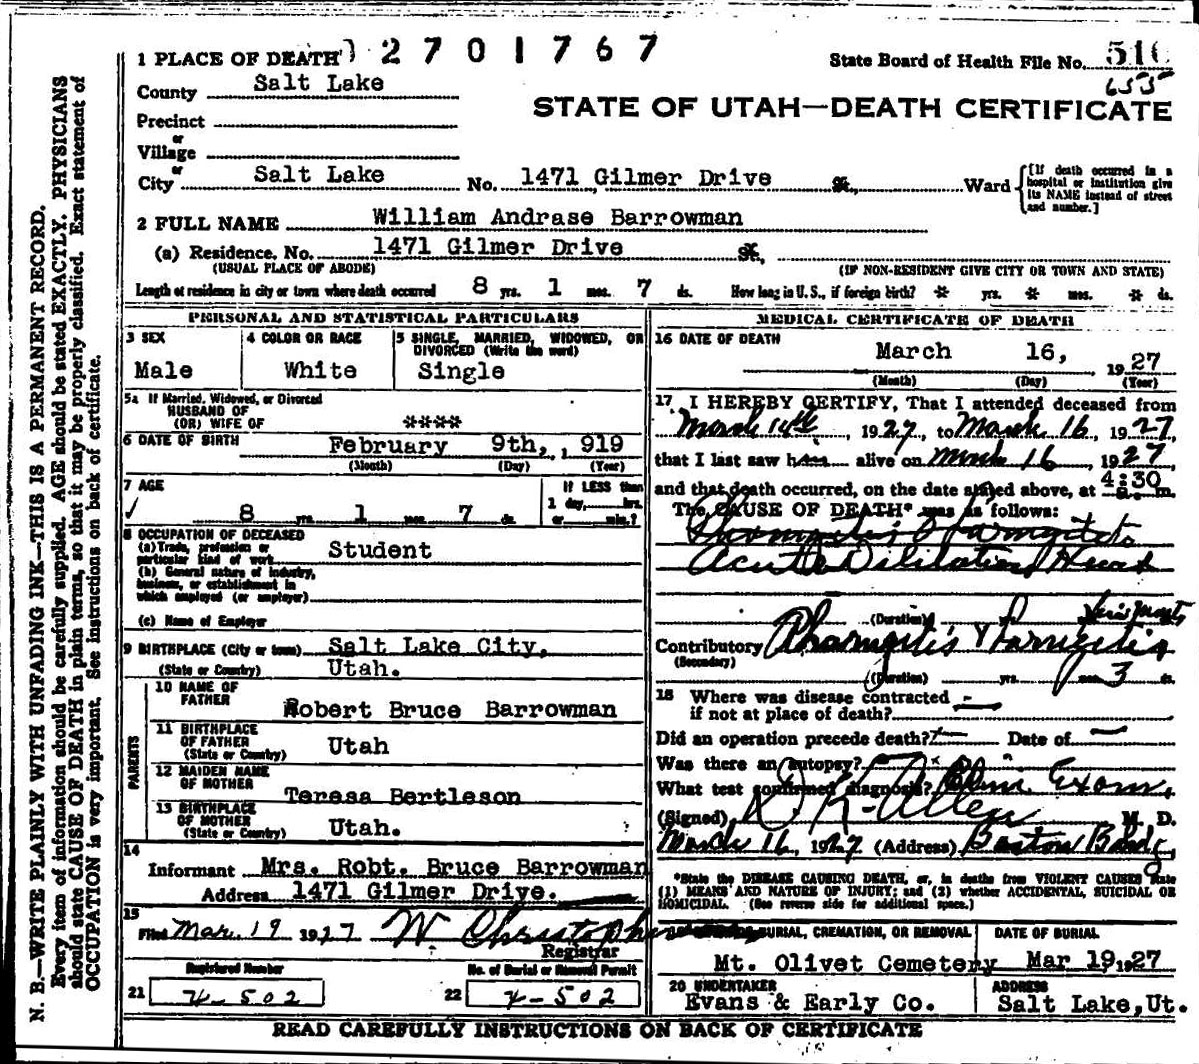 2701767
1 PLACE OF DEATH
State Board of Health File No. 510
655
County Salt Lake
STATE OF UTAH—DEATH CERTIFICATE
Precinct
or
Village
or
City Salt Lake No. 1471 Gilmer Drive St., Ward
[If death occurred in a hospital or institution give its NAME instead of street and number.]
2 FULL NAME William Andrase Barrowman
(a) Residence. No. 1471 Gilmer Drive St.,
(USUAL PLACE OF ABODE) (IF NON-RESIDENT GIVE CITY OR TOWN AND STATE)
Length of residence in city or town where death occurred 8 yrs. 1 mos. 7 ds. How long in U. S., if foreign birth? * yrs. * mos. * ds.
PERSONAL AND STATISTICAL PARTICULARS
3 SEX 4 COLOR OR RACE 5 SINGLE, MARRIED, WIDOWED, OR
DIVORCED (Write the word)
Male White Single
5a If Married, Widowed, or Divorced
HUSBAND OF
(OR) WIFE OF ****
6 DATE OF BIRTH February 9th, , 919
(Month) (Day) (Year)
7 AGE If LESS than
1 day, hrs.
8 yrs. 1 mos. 7 ds. or min.?
8 OCCUPATION OF DECEASED
(a) Trade, profession or
particular kind of work Student
(b) General nature of industry,
business, or establishment in
which employed (or employer)
(c) Name of Employer
9 BIRTHPLACE (City or town) Salt Lake City,
(State or Country) Utah.
PARENTS
10 NAME OF
FATHER Robert Bruce Barrowman
11 BIRTHPLACE
OF FATHER
(State or Country) Utah
12 MAIDEN NAME
OF MOTHER Teresa Bertleson
13 BIRTHPLACE
OF MOTHER
(State or Country) Utah.
14
Informant Mrs. Robt. Bruce Barrowman
Address 1471 Gilmer Drive.
15
Filed Mar. 19 1927 W Christopherson
Registrar
Registered Number No. of Burial or Removal Permit
21 4-502 22 4-502
MEDICAL CERTIFICATE OF DEATH
16 DATE OF DEATH
March 16, 1927
(Month) (Day) (Year)
17 I HEREBY CERTIFY, That I attended deceased from
March 14th, 1927, to March 16, 1927,
that I last saw him alive on March 16, 1927,
and that death occurred, on the date stated above, at 4:30 a. m.
The CAUSE OF DEATH* was as follows:
Pharngitis & Larngitis
Acute Dilitation Heart
(Duration)
Contributory Pharngitis & Larngitis
(Secondary)
(Duration) yrs. mos. 3 ds.
18 Where was disease contracted —
if not at place of death?
Did an operation precede death? — Date of —
Was there an autopsy?
What test confirmed diagnosis? Clin. Exam.
(Signed) D K Allen M. D.
March 16, 1927 (Address) Boston Bldg.
*State the DISEASE CAUSING DEATH, or, in deaths from VIOLENT CAUSES state
(1) MEANS AND NATURE OF INJURY; and (2) whether ACCIDENTAL, SUICIDAL OR
HOMICIDAL. (See reverse side for additional space.)
BURIAL, CREMATION, OR REMOVAL DATE OF BURIAL
Mt. Olivet Cemetery Mar 19, 1927
20 UNDERTAKER ADDRESS
Evans & Early Co. Salt Lake, Ut.
READ CAREFULLY INSTRUCTIONS ON BACK OF CERTIFICATE
N. B.—WRITE PLAINLY WITH UNFADING INK—THIS IS A PERMANENT RECORD.
Every item of information should be carefully supplied. AGE should be stated EXACTLY. PHYSICIANS
should state CAUSE OF DEATH in plain terms, so that it may be properly classified. Exact statement of
OCCUPATION is very important. See instructions on back of certificate.